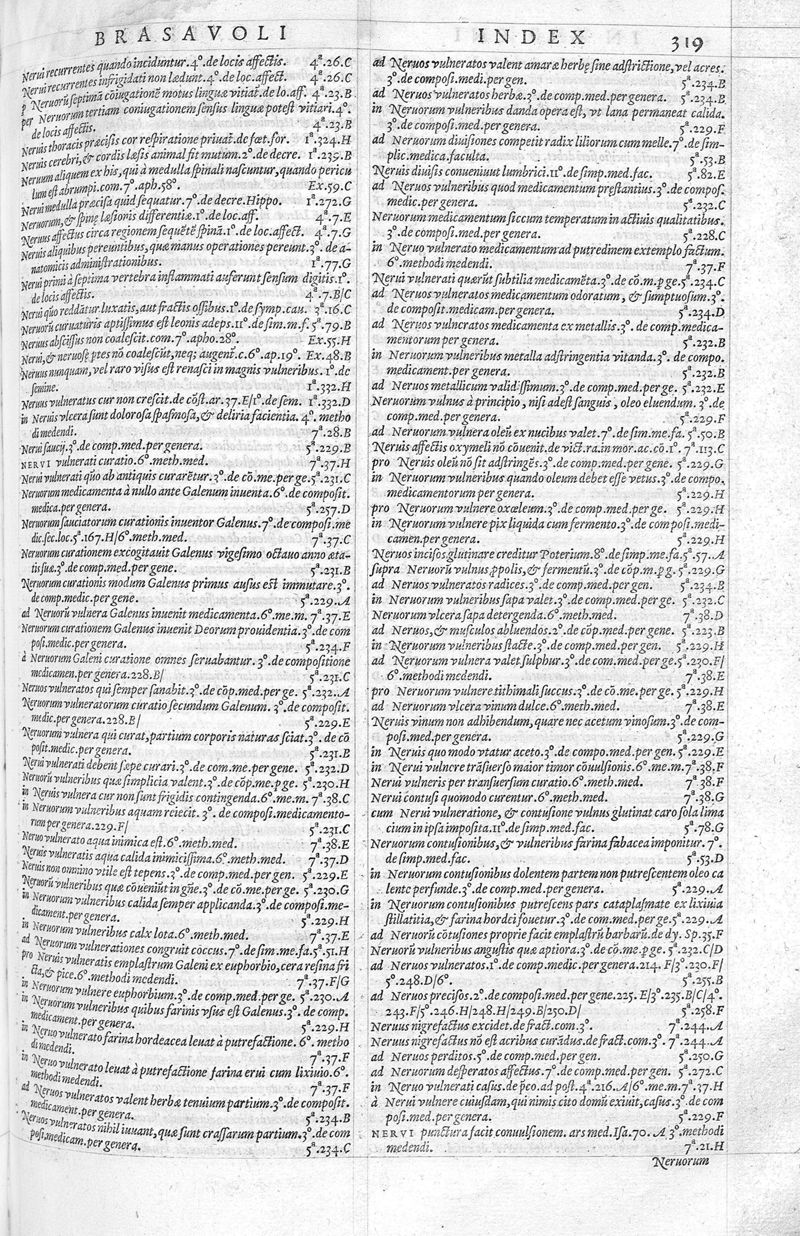 BRASAVOLI
Nerui recurrentes quando inciduntur.4º.de locis affectis. 4ª.26.C
Nerui recurrentes infrigidati non lædunt.4º.de loc.affect. 4ª.26.C
p Neruorũ septimã cõiugationẽ motus linguæ vitiat̃.de lo.aff. 4ª.23.B
per Neruorum tertiam coniugationem sensus linguæ potest vitiari.4º.
de locis affectis. 4ª.23.B
Neruis thoracis præcisis cor respiratione priuat̃.de fœt.for. 1ª.324.H
Neruis cerebri,& cordis læsis animal fit mutum.2º.de decre. 1ª.239.B
Neruum aliquem ex his, qui à medulla spinali nascuntur, quando pericu
lum est abrumpi.com.7º.aph.58º. Ex.59.C
Nerui medulla præcisa quid sequatur.7º.de decre.Hippo. 1ª.272.G
Neruorum,& spinę læsionis differentiæ.1º.de loc.aff. 4ª.7.E
Neruus affectus circa regionem sequẽtẽ spinã.1º.de loc.affect. 4ª.7.G
Neruis aliquibus pereuntibus,quæ manus operationes pereunt.3º.de a-
natomicis administrationibus. 1ª.77.G
Nerui primi à septima vertebra inflammati auferunt sensum digitis.1º.
de locis affectis. 4ª.7.B/C
Nerui quo reddãtur luxatis, aut fractis ossibus.1º.de symp.cau. 3ª.16.C
Neruorũ curuaturis aptissimus est leonis adeps.11º.de sim.m.f. 5ª.79.B
Neruus abscissus non coalescit.com.7º.apho.28º. Ex.55.H
Nerui,& neruosę p̃tes nõ coalescũt,neq; augent̃.c.6º.ap.19º. Ex.48.B
Neruus nunquam,vel raro visus est renasci in magnis vulneribus.1º.de
semine. 1ª.332.H
Neruus vulneratus cur non crescit.de cõst.ar.37.E/1º.de sem. 1ª.332.D
in Neruis vlcera sunt dolorosa spasmosa,& deliria facientia.4º.metho
di medendi. 7ª.28.B
Nerui saucij.3º.de comp.med.per genera. 5ª.229.B
NERVI vulnerati curatio.6º.meth.med. 7ª.37.H
Nerui vulnerati quo ab antiquis curarẽtur.3º.de cõ.me.per ge.5ª.231.C
Neruorum medicamenta à nullo ante Galenum inuenta.6º.de composit.
medica.per genera. 5ª.257.D
Neruorum sauciatorum curationis inuentor Galenus.7º.de composi.me
dic.sec.loc.5ª.167.H/6º.meth.med. 7ª.37.C
Neruorum curationem excogitauit Galenus vigesimo octauo anno æta-
tis suæ.3º.de comp.med.per gene. 5ª.231.B
Neruorum curationis modum Galenus primus ausus est immutare.3º.
de comp.medic.per gene. 5ª.229.A
ad Neruorũ vulnera Galenus inuenit medicamenta.6º.me.m. 7ª.37.E
Neruorum curationem Galenus inuenit Deorum prouidentia.3º.de com
posi.medic.per genera. 5ª.234.F
à Neruorum Galeni curatione omnes seruabantur.3º.de compositione
medicamen.per genera.228.B/ 5ª.231.C
Neruos vulneratos qui semper sanabit.3º.de cõp.med.per ge. 5ª.232.A
Neruorum vulneratorum curatio secundum Galenum.3º.de composit.
medic.per genera.228.B/ 5ª.229.E
Neruorum vulnera qui curat,partium corporis naturas sciat.3º.de cõ
posit.medic.per genera. 5ª.231.B
Nerui vulnerati debent sæpe curari.3º.de com.me.per gene. 5ª.232.D
Neruorũ vulneribus quæ simplicia valent.3º.de cõp.me.p̃ge. 5ª.230.H
in Neruis vulnera cur non sunt frigidis contingenda.6º.me.m. 7ª.38.C
in Neruorum vulneribus aquam reiecit.3º.de composi.medicamento-
rum per genera.229.F/ 5ª.231.C
Neruo vulnerato aqua inimica est.6º.meth.med. 7ª.38.E
Neruis vulneratis aqua calida inimicissima.6º.meth.med. 7ª.37.D
Neruis non omnino vtile est tepens.3º.de comp.med.per gen. 5ª.229.E
Neruorũ vulneribus quæ cõueniũt in gñe.3º.de cõ.me.per ge. 5ª.230.G
in Neruorum vulneribus calida semper applicanda.3º.de composi.me-
dicament.per genera. 5ª.229.H
in Neruorum vulneribus calx lota.6º.meth.med. 7ª.37.E
ad Neruorum vulnerationes congruit coccus.7º.de sim.me.fa.5ª.51.H
pro Neruis vulneratis emplastrum Galeni ex euphorbio,cera resina fri
cta,& pice.6º.methodi medendi. 7ª.37.F/G
in Neruorum vulnere euphorbium.3º.de comp.med.per ge. 5ª.230.A
in Neruorum vulneribus quibus farinis vsus est Galenus.3º.de comp.
medicament.per genera. 5ª.229.H
in Neruo vulnerato farina hordeacea leuat à putrefactione.6º.metho
di medendi. 7ª.37.F
in Neruo vulnerato leuat à putrefactione farina erui cum lixiuio.6º.
methodi medendi. 7ª.37.F
ad Neruos vulneratos valent herbæ tenuium partium.3º.de composit.
medicament.per genera. 5ª.234.B
Neruos vulneratos nihil iuuant,quæ sunt crassarum partium.3º.de com
posi.medicam.per genera. 5ª.234.C
INDEX 319
ad Neruos vulneratos valent amaræ herbę sine adstrictione,vel acres.
3º.de composi.medi.per gen. 5ª.234.B
ad Neruos vulneratos herbæ.3º.de comp.med.per genera. 5ª.234.B
in Neruorum vulneribus danda opera est, vt lana permaneat calida.
3º.de composi.med.per genera. 5ª.229.F
ad Neruorum diuisiones competit radix liliorum cum melle.7º.de sim-
plic.medica.faculta. 5ª.53.B
Neruis diuisis conueniunt lumbrici.11º.de simp.med.fac. 5ª.82.E
ad Neruos vulneratos quod medicamentum pręstantius.3º.de compos.
medic.per genera. 5ª.232.C
Neruorum medicamentum siccum temperatum in actiuis qualitatibus.
3º.de composi.med.per genera. 5ª.228.C
in Neruo vulnerato medicamentum ad putredinem extemplo factum.
6º.methodi medendi. 7ª.37.F
Nerui vulnerati quærũt subtilia medicamẽta.3º.de cõ.m.p̃ge.5ª.234.C
ad Neruos vulneratos medicamentum odoratum, & sumptuosum.3º.
de composit.medicam.per genera. 5ª.234.D
ad Neruos vulneratos medicamenta ex metallis.3º.de comp.medica-
mentorum per genera. 5ª.232.B
in Neruorum vulneribus metalla adstringentia vitanda.3º.de compo.
medicament.per genera. 5ª.232.B
ad Neruos metallicum validissimum.3º.de comp.med.per ge. 5ª.232.E
Neruorum vulnus à principio, nisi adest sanguis, oleo eluendum.3º.de
comp.med.per genera. 5ª.229.F
ad Neruorum vulnera oleũ ex nucibus valet.7º.de sim.me.fa. 5ª.50.B
Neruis affectis oxymeli nõ cõuenit.de vict.ra.in mor.ac.cõ.1º. 7ª.113.C
pro Neruis oleũ nõ sit adstringẽs.3º.de comp.med.per gene. 5ª.229.G
in Neruorum vulneribus quando oleum debet esse vetus.3º.de compo.
medicamentorum per genera. 5ª.229.H
pro Neruorum vulnere oxœleum.3º.de comp.med.per ge. 5ª.229.H
in Neruorum vulnere pix liquida cum fermento.3º.de composi.medi-
camen.per genera. 5ª.229.H
Neruos incisos glutinare creditur Poterium.8º.de simp.me.fa.5ª.57.A
supra Neruorũ vulnus,ppolis,& fermentũ.3º.de cõp.m.pg. 5ª.229.G
ad Neruos vulneratos radices.3º.de comp.med.per gen. 5ª.234.B
in Neruorum vulneribus sapa valet.3º.de comp.med.per ge. 5ª.232.C
Neruorum vlcera sapa detergenda.6º.meth.med. 7ª.38.D
ad Neruos,& musculos abluendos.2º.de cõp.med.per gene. 5ª.223.B
in Neruorum vulneribus stacte.3º.de comp.med.per gen. 5ª.229.H
ad Neruorum vulnera valet sulphur.3º.de com.med.per ge.5ª.230.F/
6º.methodi medendi. 7ª.38.E
pro Neruorum vulnere tithimali succus.3º.de cõ.me.per ge. 5ª.229.H
ad Neruorum vlcera vinum dulce.6º.meth.med. 7ª.38.E
Neruis vinum non adhibendum,quare nec acetum vinosum.3º.de com-
posi.med.per genera. 5ª.229.G
in Neruis quo modo vtatur aceto.3º.de compo.med.per gen.5ª.229.E
in Nerui vulnere trãsuerso maior timor cõuulsionis.6º.me.m.7ª.38.F
Nerui vulneris per transuersum curatio.6º.meth.med. 7ª.38.F
Nerui contusi quomodo curentur.6º.meth.med. 7ª.38.G
cum Nerui vulneratione, & contusione vulnus glutinat caro sola lima
cium in ipsa imposita.11º.de simp.med.fac. 5ª.78.G
Neruorum contusionibus,& vulneribus farina fabacea imponitur.7º.
de simp.med.fac. 5ª.53.D
in Neruorum contusionibus dolentem partem non putrescentem oleo ca
lente perfunde.3º.de comp.med.per genera. 5ª.229.A
in Neruorum contusionibus putrescens pars cataplasmate ex lixiuia
stillatitia,& farina hordei fouetur.3º.de com.med.per ge.5ª.229.A
ad Neruorũ cõtusiones proprie facit emplastrũ barbarũ.de dy. Sp.35.F
Neruorũ vulneribus angustis quæ aptiora.3º.de cõ.me.p̃ge. 5ª.232.C/D
ad Neruos vulneratos.1º.de comp.medic.per genera.214.F/3º.230.F/
5º.248.D/6º. 5ª.255.B
ad Neruos precisos.2º.de composi.med.per gene.225.E/3º.235.B/C/4º.
243.F/5º.246.H/248.H/249.B/250.D/ 5ª.258.F
Neruus nigrefactus excidet.de fract.com.3º. 7ª.244.A
Neruus nigrefactus nõ est acribus curãdus.de fract.com.3º. 7ª.244.A
ad Neruos perditos.5º.de comp.med.per genera. 5ª.250.G
ad Neruorum desperatos affectus.7º.de comp.med.per gen. 5ª.272.C
in Neruo vulnerati casus.de p̃co.ad post.4ª.216.A/6º.me.m.7ª.37.H
à Nerui vulnere cuiusdam,qui nimis cito domũ exiuit,casus.3º.de com
posi.med.per genera. 5ª.229.F
NERVI punctura facit conuulsionem. ars med.Isa.70.A 3º.methodi
medendi. 7ª.21.H
Neruorum